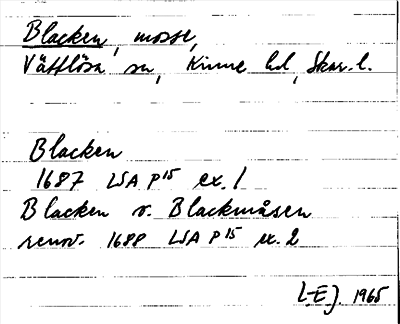 Blacken, mosse,
Vättlösa sn, Kinne hd, Skar. l.
Blacken
1687 LSA P15 ex. 1
Blacken v. Blackmåsen
renov. 1688 LSA P15 ex. 2
L-EJ. 1965